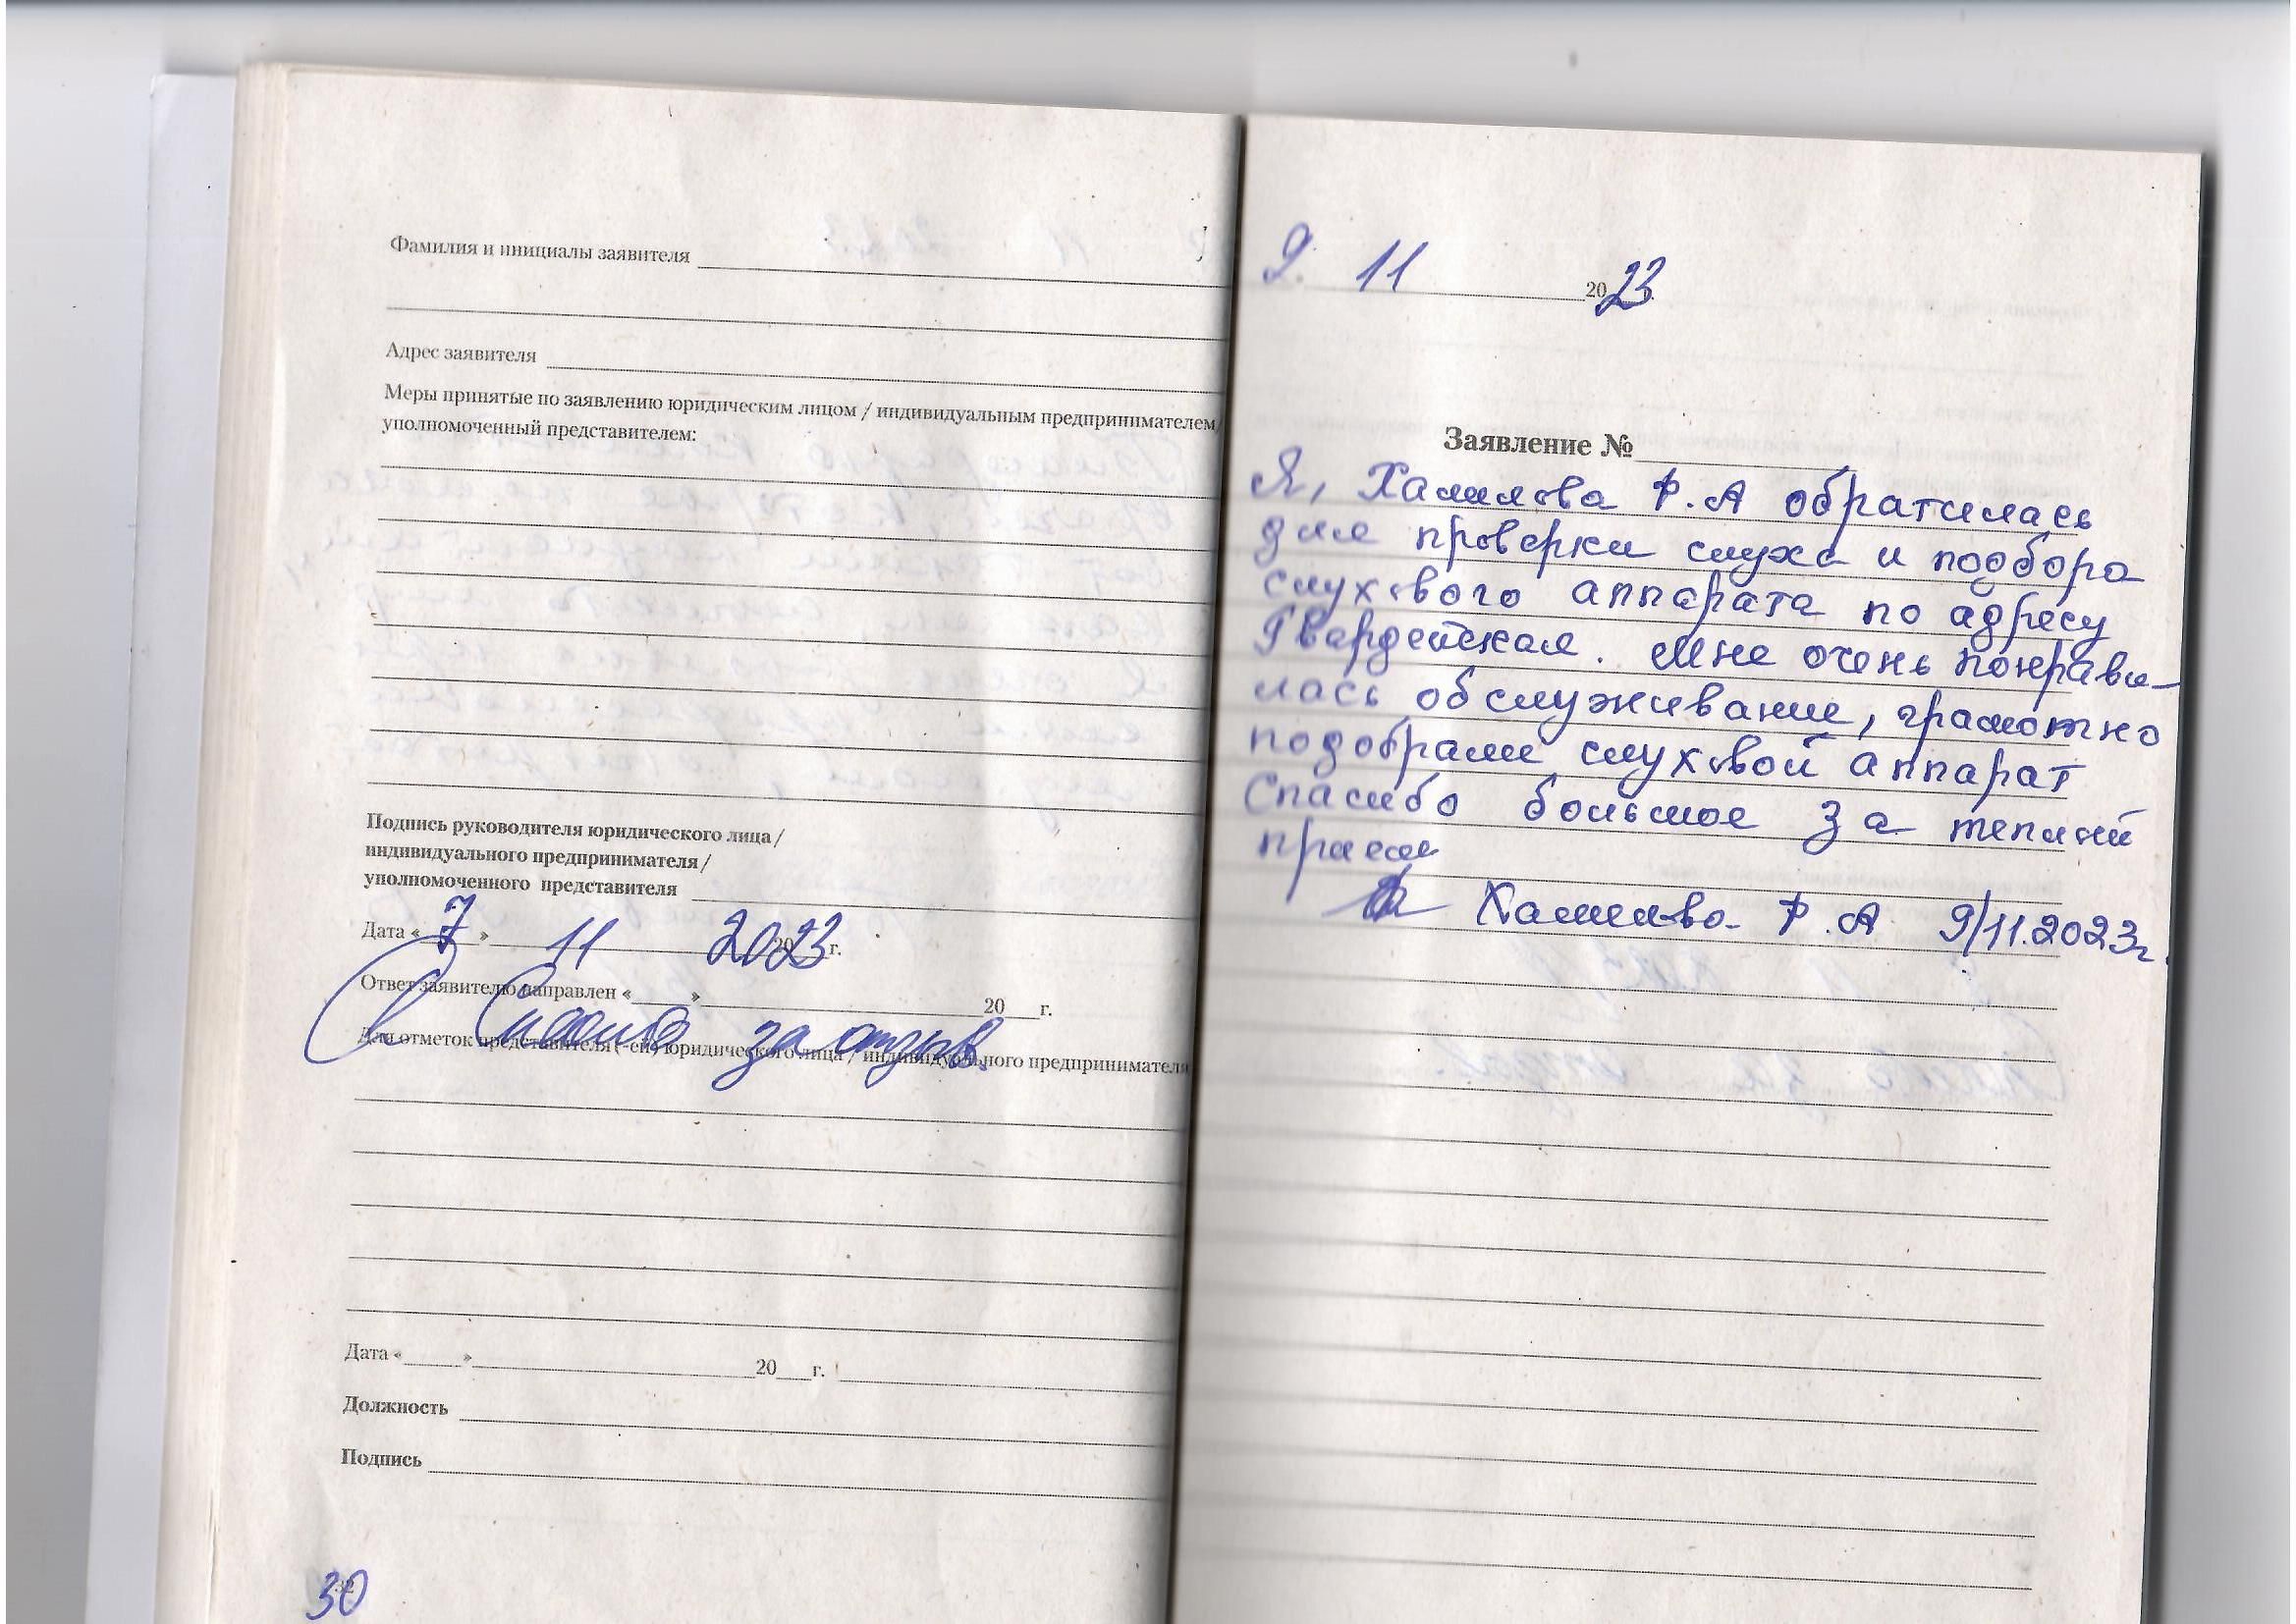 Фамилия и инициалы заявителя
Адрес заявителя
Меры принятые по заявлению юридическим лицом / индивидуальным предпринимателем/
уполномоченный представителем:
Подпись руководителя юридического лица /
индивидуального предпринимателя /
уполномоченного представителя
Дата « 7 » 11 2023 г.
Ответ заявителю направлен «____»____20___г.
Спасибо за отзыв.
Для отметок представителя (-ей) юридического лица / индивидуального предпринимателя
Дата «____»____20___г.
Должность
Подпись
30
9. 11 2023
Заявление №
Я, Хамилова Р.А обратилась
для проверки слуха и подбора
слухового аппарата по адресу
Гвардейская. Мне очень понрави-
лась обслуживание, грамотно
подобрали слуховой аппарат
Спасибо большое за теплый
прием
Хамилова Р.А 9/11.2023г.